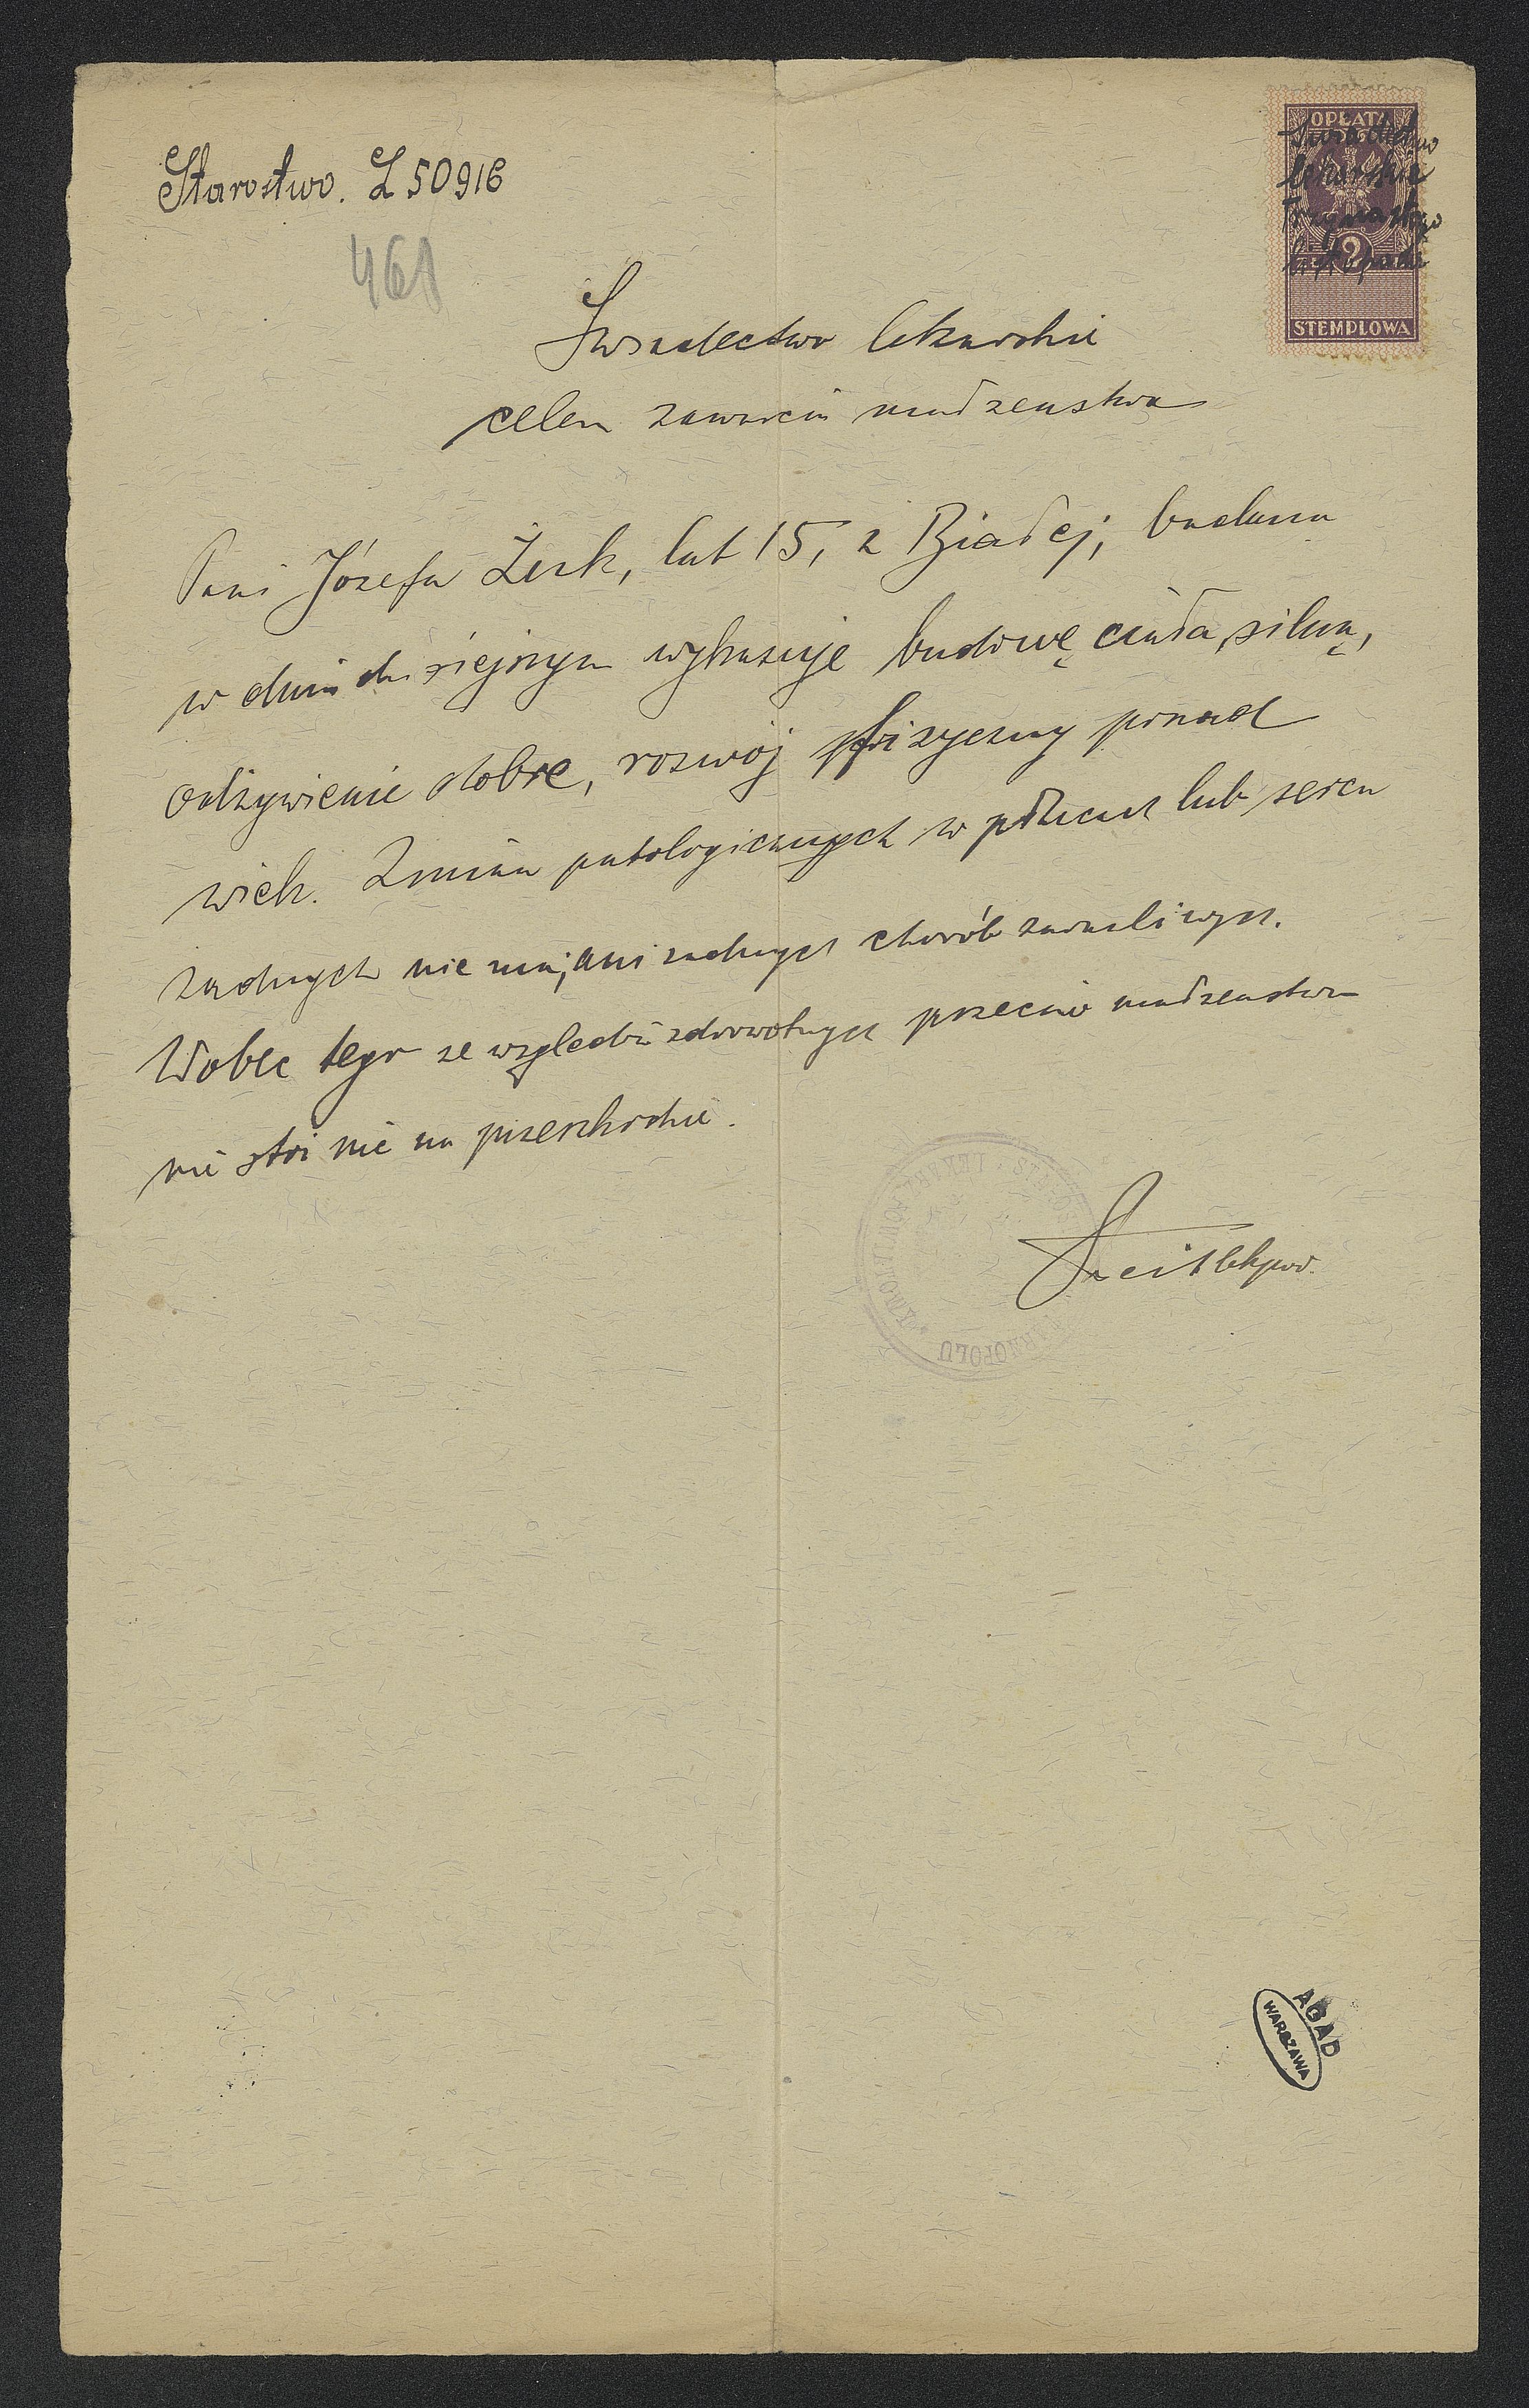 Starostwo. L 50916
461
OPŁATA
Świadectwo
lekarskie
Trzynastego
listopada
2
STEMPLOWA
Świadectwo lekarskie
celem zawarcia małżeństwa
Pani Józefa Żuk, lat 15, z Białej, badana
w dniu dzisiejszym wykazuje budowę ciała silną,
odżywienie dobre, rozwój fizyczny ponad
wiek. Zmian patologicznych w płucach lub sercu
żadnych nie ma, ani żadnych chorób zaraźliwych.
Wobec tego ze względów zdrowotnych przeciw małżeństwu
nie stoi nic na przeszkodzie.
lek pow.
LEKARZ POWIATOWY
TARNOPOLU
AGAD
WARSZAWA